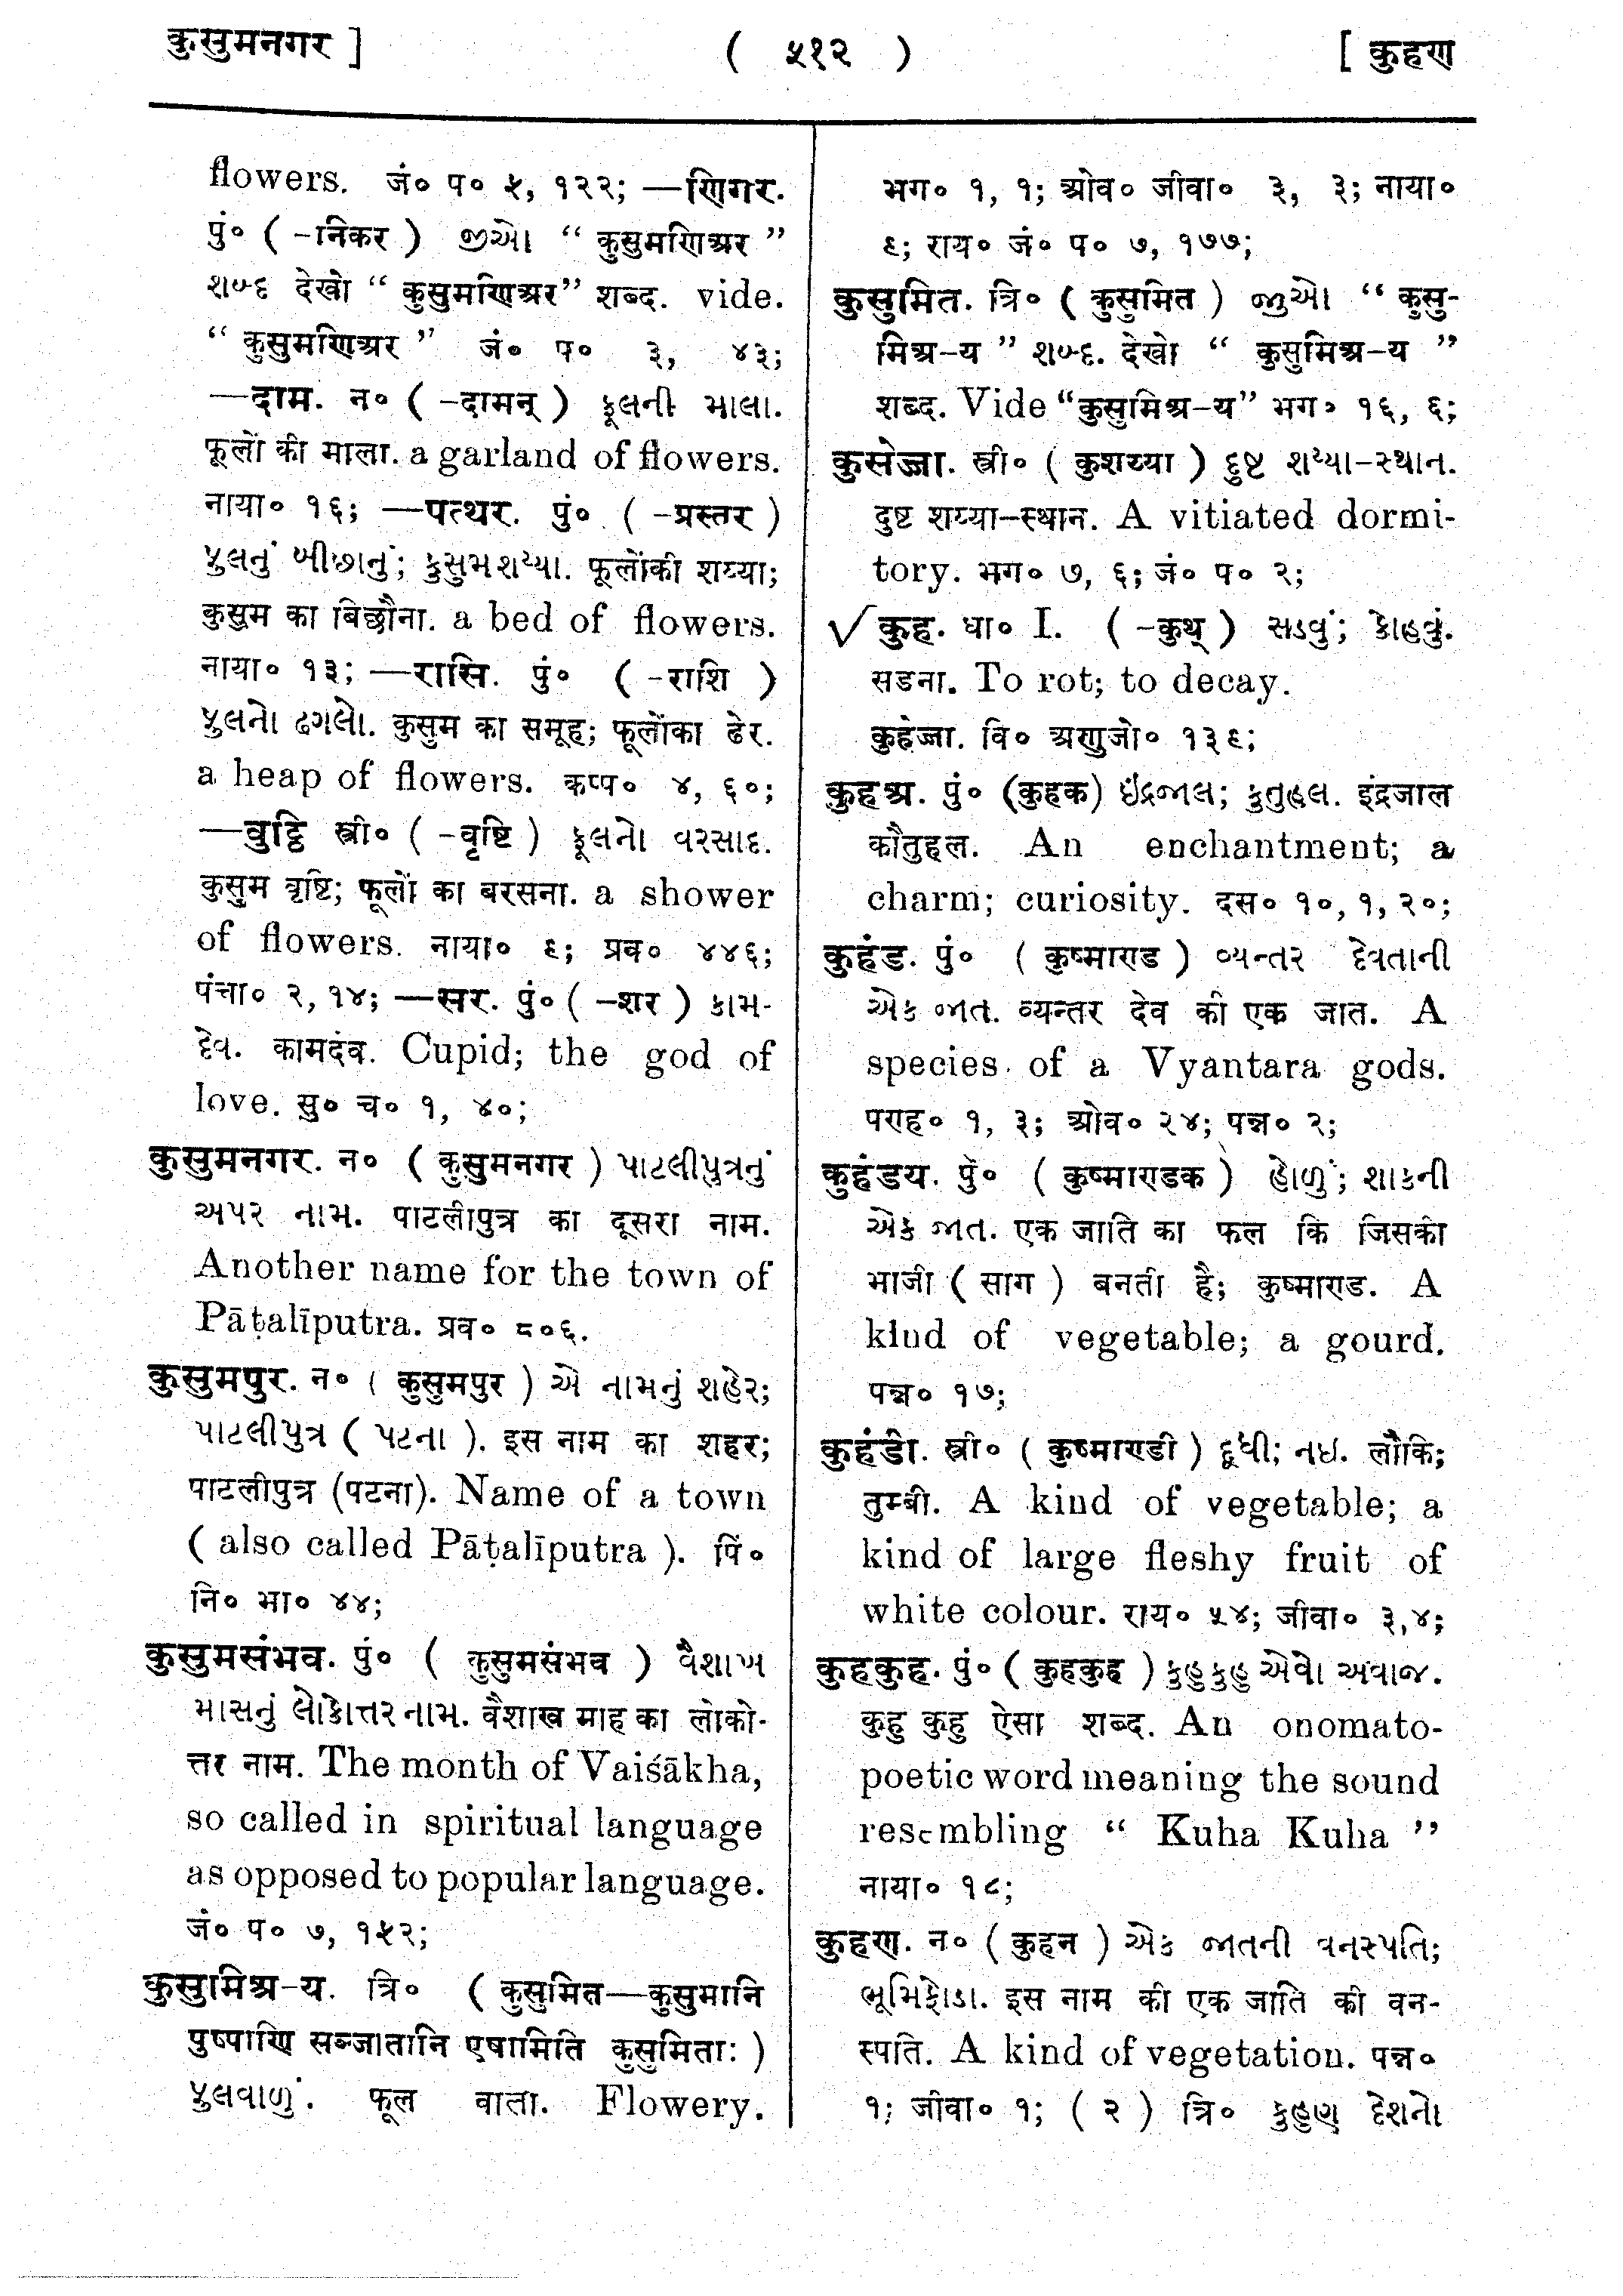 कुसुमनगर ]
( ५१२ )
[ कुहण
flowers. जं० प० ५, १२२; —णिगर.
पुं० ( -निकर ) જીઓ “ कुसुमणिअर ”
શબ્દ देखो “ कुसुमणिअर” शब्द. vide.
“ कुसुमणिअर ” जं० प० ३, ४३;
—दाम. न० ( -दामन् ) ફૂલની માલા.
फूलों की माला. a garland of flowers.
नाया० १६; —पत्थर. पुं० ( -प्रस्तर )
ફુલનું બીછાનું; કુસુમશય્યા. फूलोंकी शय्या;
कुसुम का बिछौना. a bed of flowers.
नाया० १३; —रासि. पुं० ( -राशि )
ફુલનો ઢગલો. कुसुम का समूह; फूलोंका ढेर.
a heap of flowers. कप्प० ४, ६०;
—वुट्ठि स्त्री० ( -वृष्टि ) ફૂલનો વરસાદ.
कुसुम वृष्टि; फूलों का बरसना. a shower
of flowers. नाया० ९; प्रव० ४४६;
पंचा० २, १४; —सर. पुं० ( -शर ) કામ-
દેવ. कामदेव. Cupid; the god of
love. सु० च० १, ४०;
कुसुमनगर. न० ( कुसुमनगर ) પાટલીપુત્રનું
અપર નામ. पाटलीपुत्र का दूसरा नाम.
Another name for the town of
Pāṭalīputra. प्रव० ८०६.
कुसुमपुर. न० ( कुसुमपुर ) એ નામનું શહેર;
પાટલીપુત્ર ( પટના ). इस नाम का शहर;
पाटलीपुत्र (पटना). Name of a town
( also called Pāṭalīputra ). पिं०
नि० भा० ४४;
कुसुमसंभव. पुं० ( कुसुमसंभव ) વૈશાખ
માસનું લોકોત્તર નામ. वैशाख माह का लोको-
त्तर नाम. The month of Vaiśākha,
so called in spiritual language
as opposed to popular language.
जं० प० ७, १५२;
कुसुमिअ-य. त्रि० ( कुसुमित—कुसुमानि
पुष्पाणि सञ्जातानि एषामिति कुसुमिताः )
ફુલવાળું. फूल वाला. Flowery.
भग० १, १; ओव० जीवा० ३, ३; नाया०
९; राय० जं० प० ७, १७७;
कुसुमित. त्रि० ( कुसुमित ) જુઓ “ कुसु-
मिअ-य ” શબ્દ. देखो “ कुसुमिअ-य ”
शब्द. Vide “कुसुमिअ-य” भग० १६, ६;
कुसेज्जा. स्त्री० ( कुशय्या ) દુષ્ટ શય્યા-સ્થાન.
दुष्ट शय्या-स्थान. A vitiated dormi-
tory. भग० ७, ६; जं० प० २;
√ कुह. धा० I. ( -कुथ् ) સડવું; કોહવું.
सडना. To rot; to decay.
कुहेज्जा. वि० अणुजो० १३९;
कुहअ. पुं० (कुहक) ઇંદ્રજાલ; કુતુહલ. इंद्रजाल
कौतुहल. An enchantment; a
charm; curiosity. दस० १०, १, २०;
कुहंड. पुं० ( कुष्माण्ड ) વ્યન્તર દેવતાની
એક જાત. व्यन्तर देव की एक जात. A
species of a Vyantara gods.
पण्ह० १, ३; ओव० २४; पन्न० २;
कुहंडय. पुं० ( कुष्माण्डक ) હોળું; શાકની
એક જાત. एक जाति का फल कि जिसकी
भाजी ( साग ) बनती है; कुष्माण्ड. A
kind of vegetable; a gourd.
पन्न० १७;
कुहंडी. स्त्री० ( कुष्माण्डी ) દૂધી; નઇ. लौकि;
तुम्बी. A kind of vegetable; a
kind of large fleshy fruit of
white colour. राय० ५४; जीवा० ३,४;
कुहकुह. पुं० ( कुहकुह ) કુહુકુહુ એવો અવાજ.
कुहु कुहु ऐसा शब्द. An onomato-
poetic word meaning the sound
resembling “ Kuha Kuha ”
नाया० १८;
कुहण. न० ( कुहन ) એક જાતની વનસ્પતિ;
ભૂમિફોડા. इस नाम की एक जाति की वन-
स्पति. A kind of vegetation. पन्न०
१; जीवा० १; ( २ ) त्रि० કુહણ દેશનો